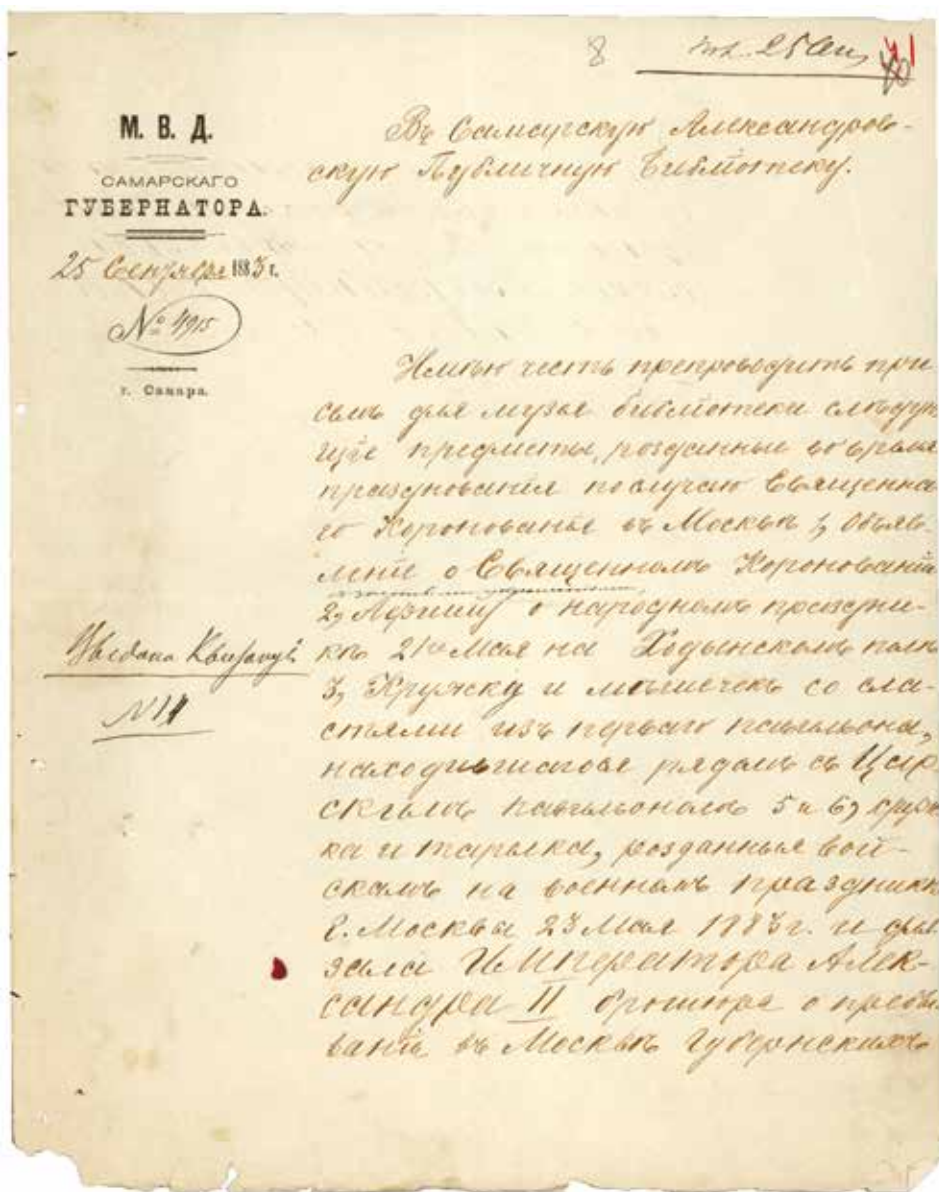 8
пол. 25 Сен.
41
М. В. Д.
САМАРСКАГО
ГУБЕРНАТОРА.
25 Сентября 1883 г.
№ 4915
г. Самара.
Въ Самарскую Александров-
скую Публичную Библіотеку.
Имѣю честь препроводить при
семъ для музея библіотеки слѣдую
щіе предметы, розданные во время
празднованія по случаю Священна
го Коронованія въ Москвѣ 1, Объяв-
леніе о Священномъ Коронованіи
2, Афишу о народномъ праздни-
кѣ 21го Мая на Ходынскомъ полѣ
3, Кружку и мѣшечекъ со сла-
стями изъ перваго павильона,
находившагося рядомъ съ Цар
скимъ павильономъ 5 и 6,
ка и тарелка, розданныя вой-
скамъ на военномъ праздникѣ
г. Москвы 23 Мая 1883 г. и для
зала Императора Алек-
сандра II брошюра о пребы
ваніи въ Москвѣ Губернскихъ
№ 14